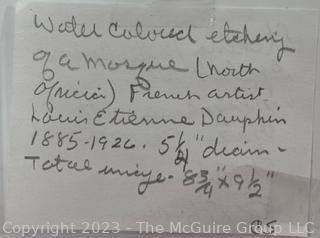 Water colored etching
of a Mosque (North
Africa) French artist
Louis Etienne Dauphin
1885-1926. 5 1/4" diam-
Total image - 8 3/4" x 9 1/2"
Copyright 2023 - The McGuire Group LLC